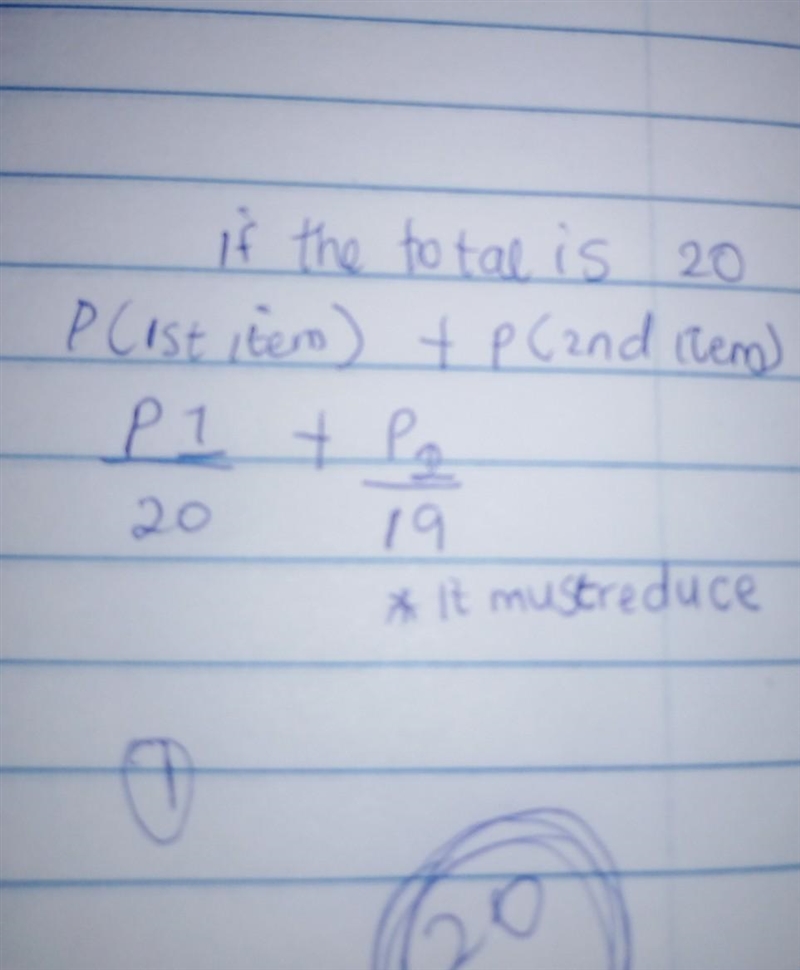 if the total is 20
P(1st item) + P(2nd item)
P1 + P2
20 19
* it must reduce
1
20